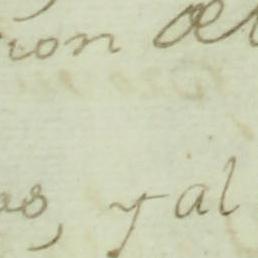 ion de
os, y al